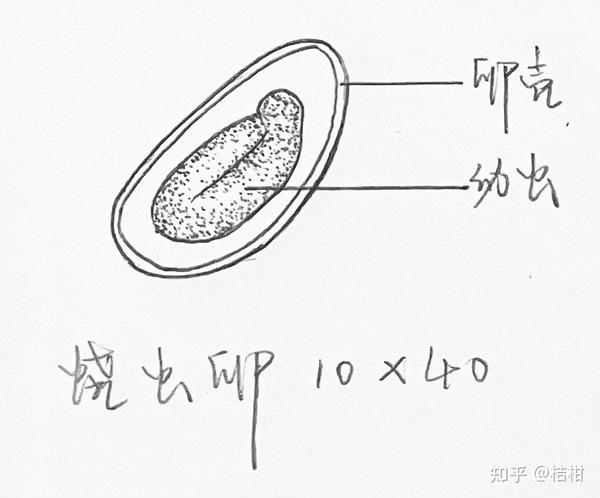 卵壳
幼虫
烧虫卵 10×40
知乎 @桔柑